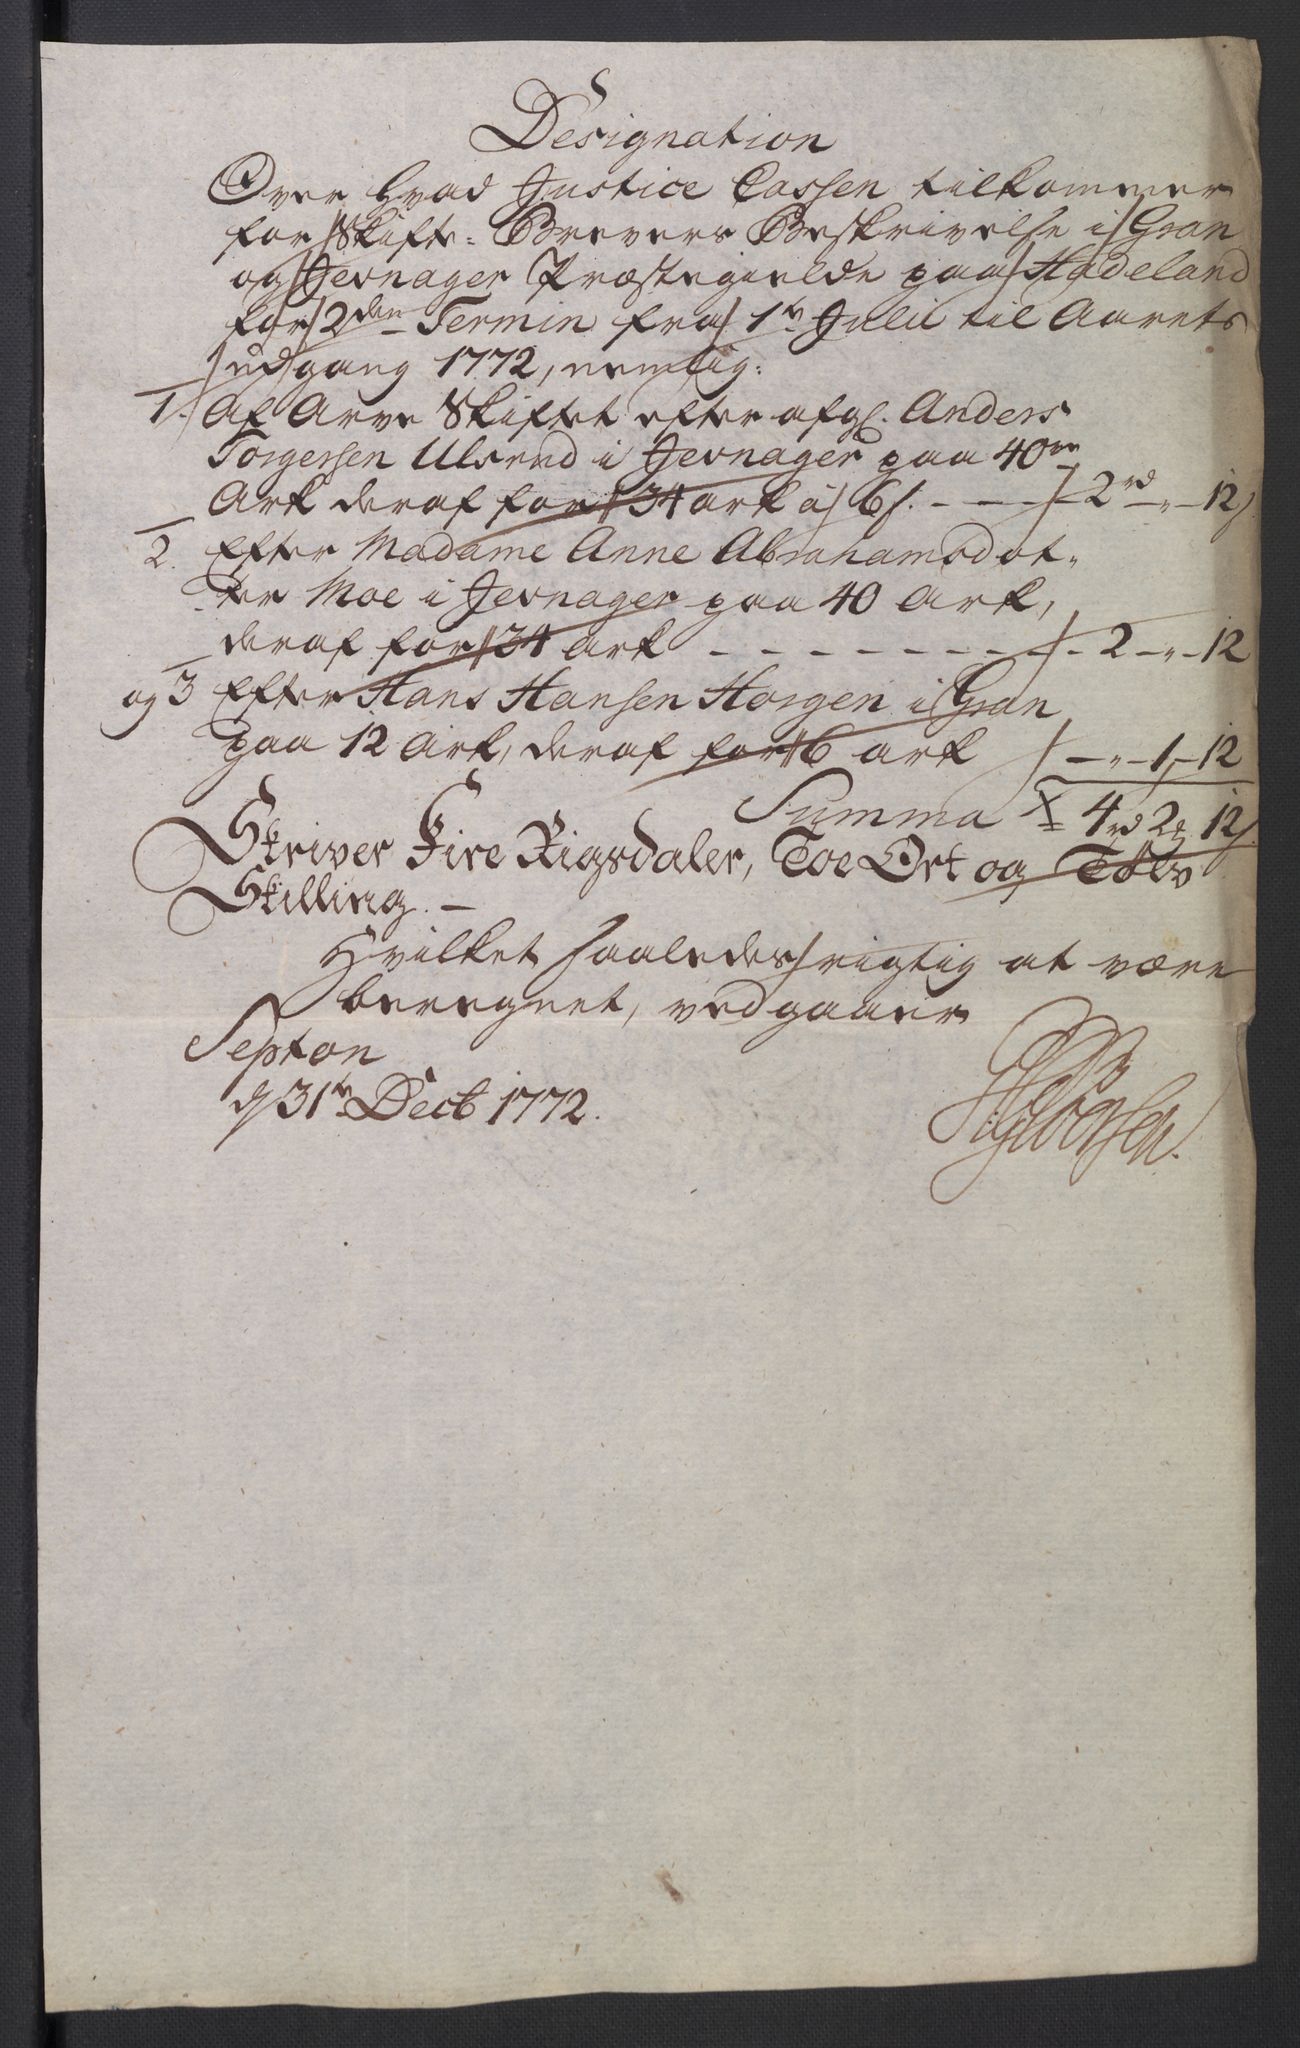 Designation
Over hvad Justice Cassen tilkommer
for Skifte-Brevers Beskrivelse i Gran
og Jevnager Præstegielde paa Hadeland
for 2den Termin fra 1te Julii til Aarets
udgang 1772, nemlig:
1. Af Arve Skiftet efter afg. Anders
Torgersen Ulsrud i Jevnager paa 40ve
Ark deraf for 34 ark á 6 s. - - - 2 rd - " - 12 s
2. Efter Madame Anne Abrahamsdot-
ter Moe i Jevnager paa 40 Ark,
deraf for 34 Ark - - - - - - - - 2 - " - 12
og 3 Efter Hans Hansen Horgen i Gran
paa 12 Ark, deraf for 6 ark - " - 1 - 12
Summa 4 rd 2 12 s
Skriver Fire Rigsdaler, Toe Ort og Tolv
Skilling. -
Hvilket saaledes rigtig at være
beregnet, vedgaaer
Septon
d 31te Decb 1772.